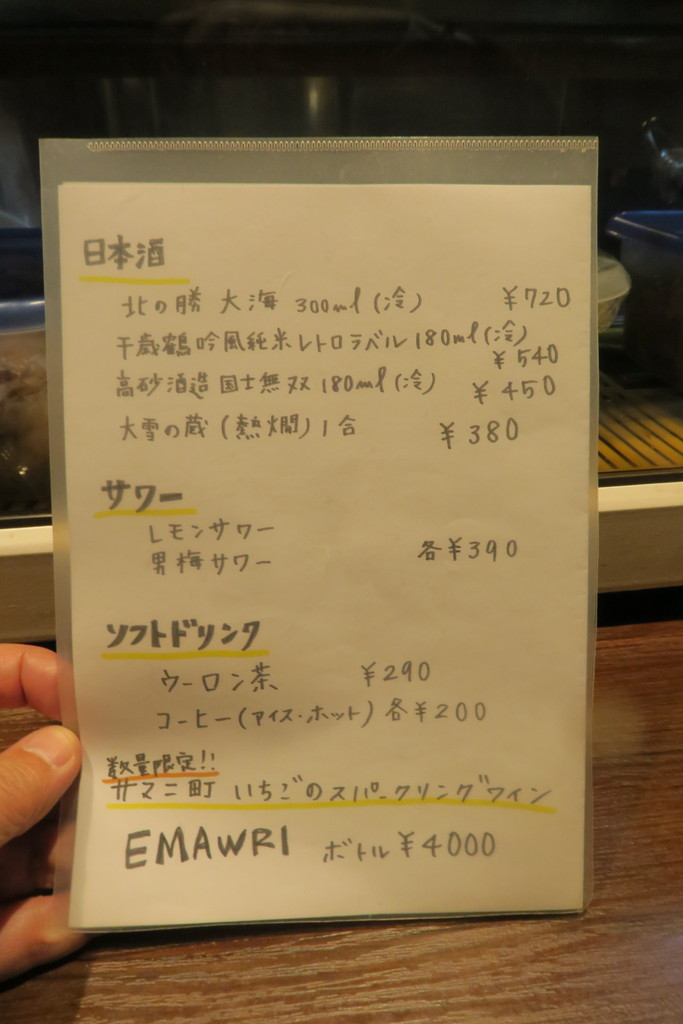 日本酒
北の勝 大海 300ml (冷) ¥720
千歳鶴 吟風純米レトロラベル 180ml (冷)
¥540
高砂酒造 国士無双 180ml (冷) ¥450
大雪の蔵 (熱燗) 1合 ¥380
サワー
レモンサワー
男梅サワー 各¥390
ソフトドリンク
ウーロン茶 ¥290
コーヒー(アイス・ホット) 各¥200
数量限定!!
サマニ町 いちごのスパークリングワイン
EMAWRI ボトル ¥4000